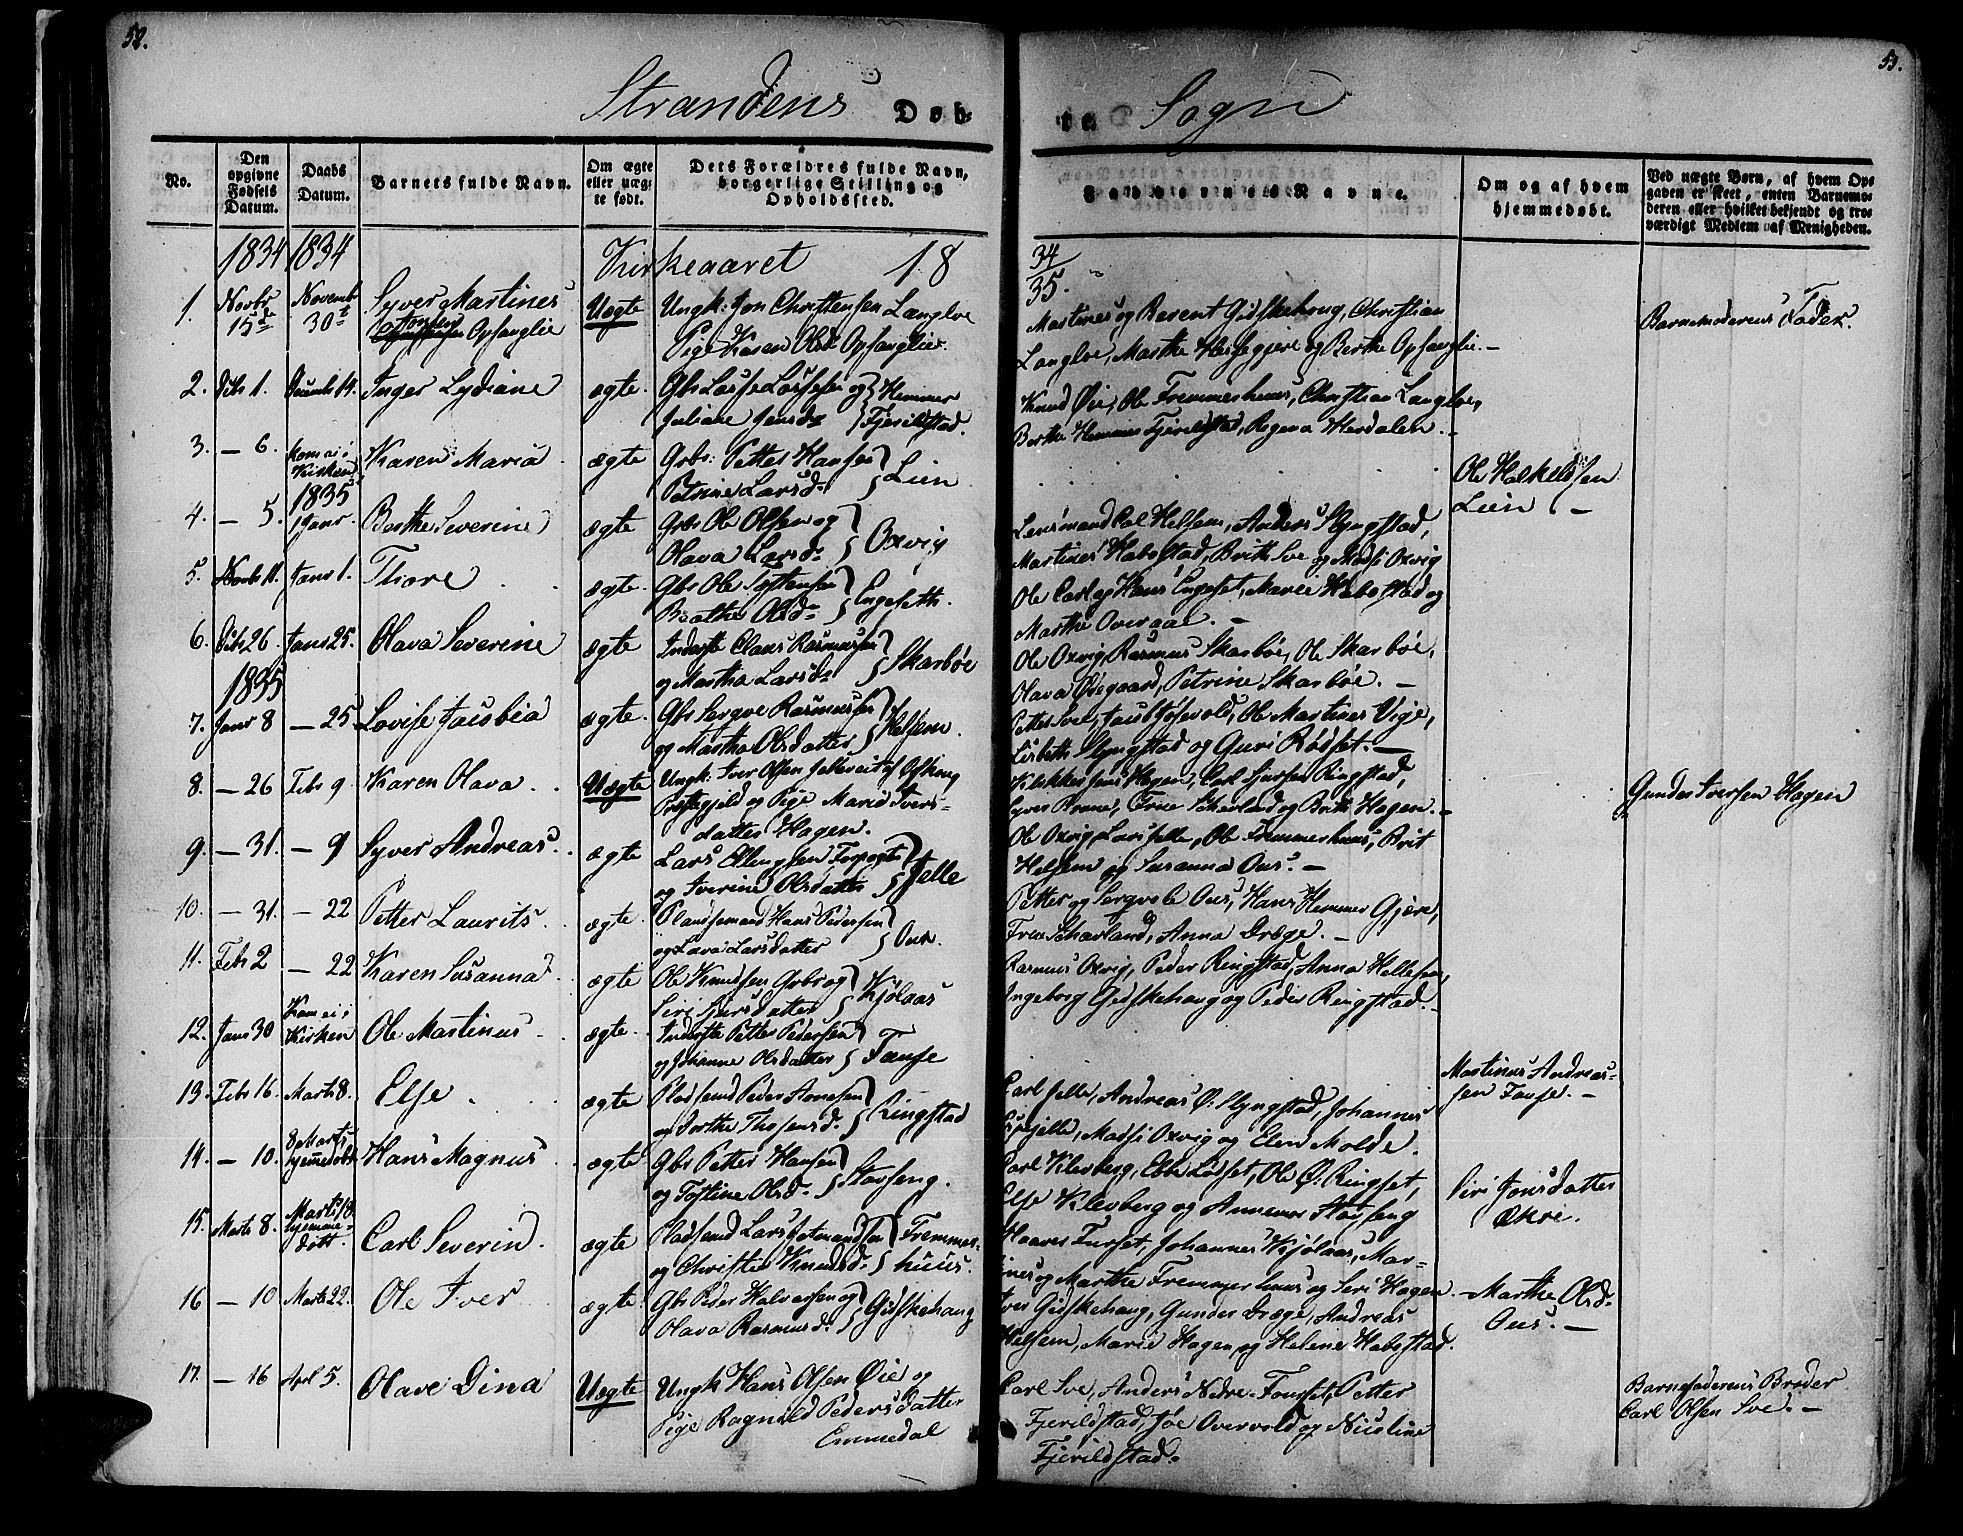 52.
53.
Strandens Døb-
te Sogn
No.
Den opgivne Fødsels Datum.
Daabs Datum.
Barnets fulde Navn.
Om ægte eller uæg- te født.
Dets Forældres fulde Navn, borgerlige Stilling og Opholdssted.
Faddernes Navne.
Om og af hvem hjemmedøbt.
Ved uægte Børn, af hvem Op- gaven er skeet, enten Barnemo- deren eller hvilket bekjendt og tro- værdigt Medlem af Menigheden.
1834 1834 Kirkeaaret 18 34/35.
1. Novbr 15de Novemb 30t Syver Martines
Opfanglie Uægte Ungk: Jon Christensen Langloe
Pige Karen Olsd Opfanglie.
Martines og Berent Gidskehoug, Christian
Langloe, Marthe Hessegjere og Berthe Opfanglie.—
Barnemoderens Fader.
2. Debr 1. Decemb 14. Inger Lydiane ægte. Gbr Lasse Lassesen og Hemmer
Juliane Jensd: Fjerildstad.
Knud Øie, Ole Fremmerhuus, Christian Langloe,
Berthe Hemmer Fjerildstad, Regena Herdalen.—
3. — 6. Kom ei i Kirken Karen Maria ægte Gbr: Petter Hansen
Petrine Larsd: Lien
Ole Halkeldsen
Lien —
1835
4. — 5. 1 Janr. Berthe Severine ægte Grbr Ole Olsen og
Olava Larsd: Oxvig
Lensmand Carl Helsem, Anders Slyngstad,
Martines Habostad, Brith Sve og Madsi Oxvig
5. Novbr 11. Janr 1. Thore ægte. Gbr Ole Tostensen
Berthe Olsd: Engeseth.
Ole Carl og Hans Engeset, Marie Habostad og
Marthe Overaae.—
6. Debr 26. Janr 25. Olava Severine ægte Inderste Claus Rasmussen
og Martha Larsd: Skarbøe
Ole Oxvig, Rasmus Skarbøe, Ole Skarbøe,
Olava Ødegaard, Petrine Skarbøe.—
1835
7. Janr 8 — 25 Lovise Jacobia ægte. Gbr Sergve Rasmussen
og Martha Olsdatter Helsem.
Petter Sve, Jacob Gosevold, Ole Martines Vige,
Lisbeth Slyngstad og Guri Rødset.—
8. — 26 Febr 9. Karen Olava. Uægte Ungk: Iver Olsen
Præstegjeld og Pige Marie Ivers-
datter Hagen.
Hagen, Carl Ringstad,
Syver Brune, og Brith Hagen.—
Gunder Iversen Hagen
9. — 31. — 9 Syver Andreas. ægte Lars Ellingsen
og Iverine Olsdatter Jelle
Ole Oxvig, Lars Jelle, Ole Fremmerhuus, Brit
Helsem og Susanna Ous.—
10. — 31. — 22 Petter Laurits. ægte. Pladsemand Hans Pedersen
og Lava Larsdatter Ous.
Petter og Sergvele Ous, Hans Hemmer Gjære,
Anna Dræge.—
11. Febr 2 — 22 Karen Susanna ægte Ole Knudsen Grbr og
Siri Sjursdatter Kjølaas
Rasmus Oxvig, Peder Ringstad, Anna Hellesen,
Ingeborg Gidskehaug og Peder Ringstad.—
12. Janr 30 Kom ei i Kirken Ole Martinus ægte. Inderste Petter Pedersen
og Johanne Olsdatter Fause
Martinus Andreas-
sen Fause.—
13. Febr 16. Marts 8. Else ægte Pladsemd Peder Aanesen
og Dorthe Thosensd: Ringstad
Carl Jelle, Andreas Ø: Slyngstad, Johannes
Jelle, Madsi Oxvig og Elen Molde.
14. — 10. 8 Marts hjemmedøbt Hans Magnus ægte Gbr Petter Hansen
og Tostine Olsd: Stavseng.
Carl Klevberg, Ole Ø: Ringset,
Else Klevberg og Annemor Stavseng
Siri Jonsdatter
Ækre.
15. Marts 8. Marts 18 hjemme- døbt. Carl Severin. ægte Pladsemd Lars
og Christie Knudsd: Fremmer-
huus.
Haaver Furset, Johannes Kjølaas, Mar-
tines og Marthe Fremmerhuus og Seri Hagen.
— Marthe Olsd:
Ous.—
16 — 10 Marts 22. Ole Iver ægte. Gbr Peder Halvorsen og
Olava Rasmusd: Gidskehaug
Iver Gidskehaug, Gunder Dræge, Andreas
Helsem, Marie Hagen og Helene Habostad.
17. — 16 Aprl 5. Olave Dina Uægte Ungk Hans Olsen Øie og
Pige Ragnild Pedersdatter
Emmedal
Carl Sve, Anders Nedre-Fauset, Petter
Fjerildstad, Joe Overvold og Nicoline
Fjerildstad.
Barnefaderens Broder
Carl Olsen Sve.—